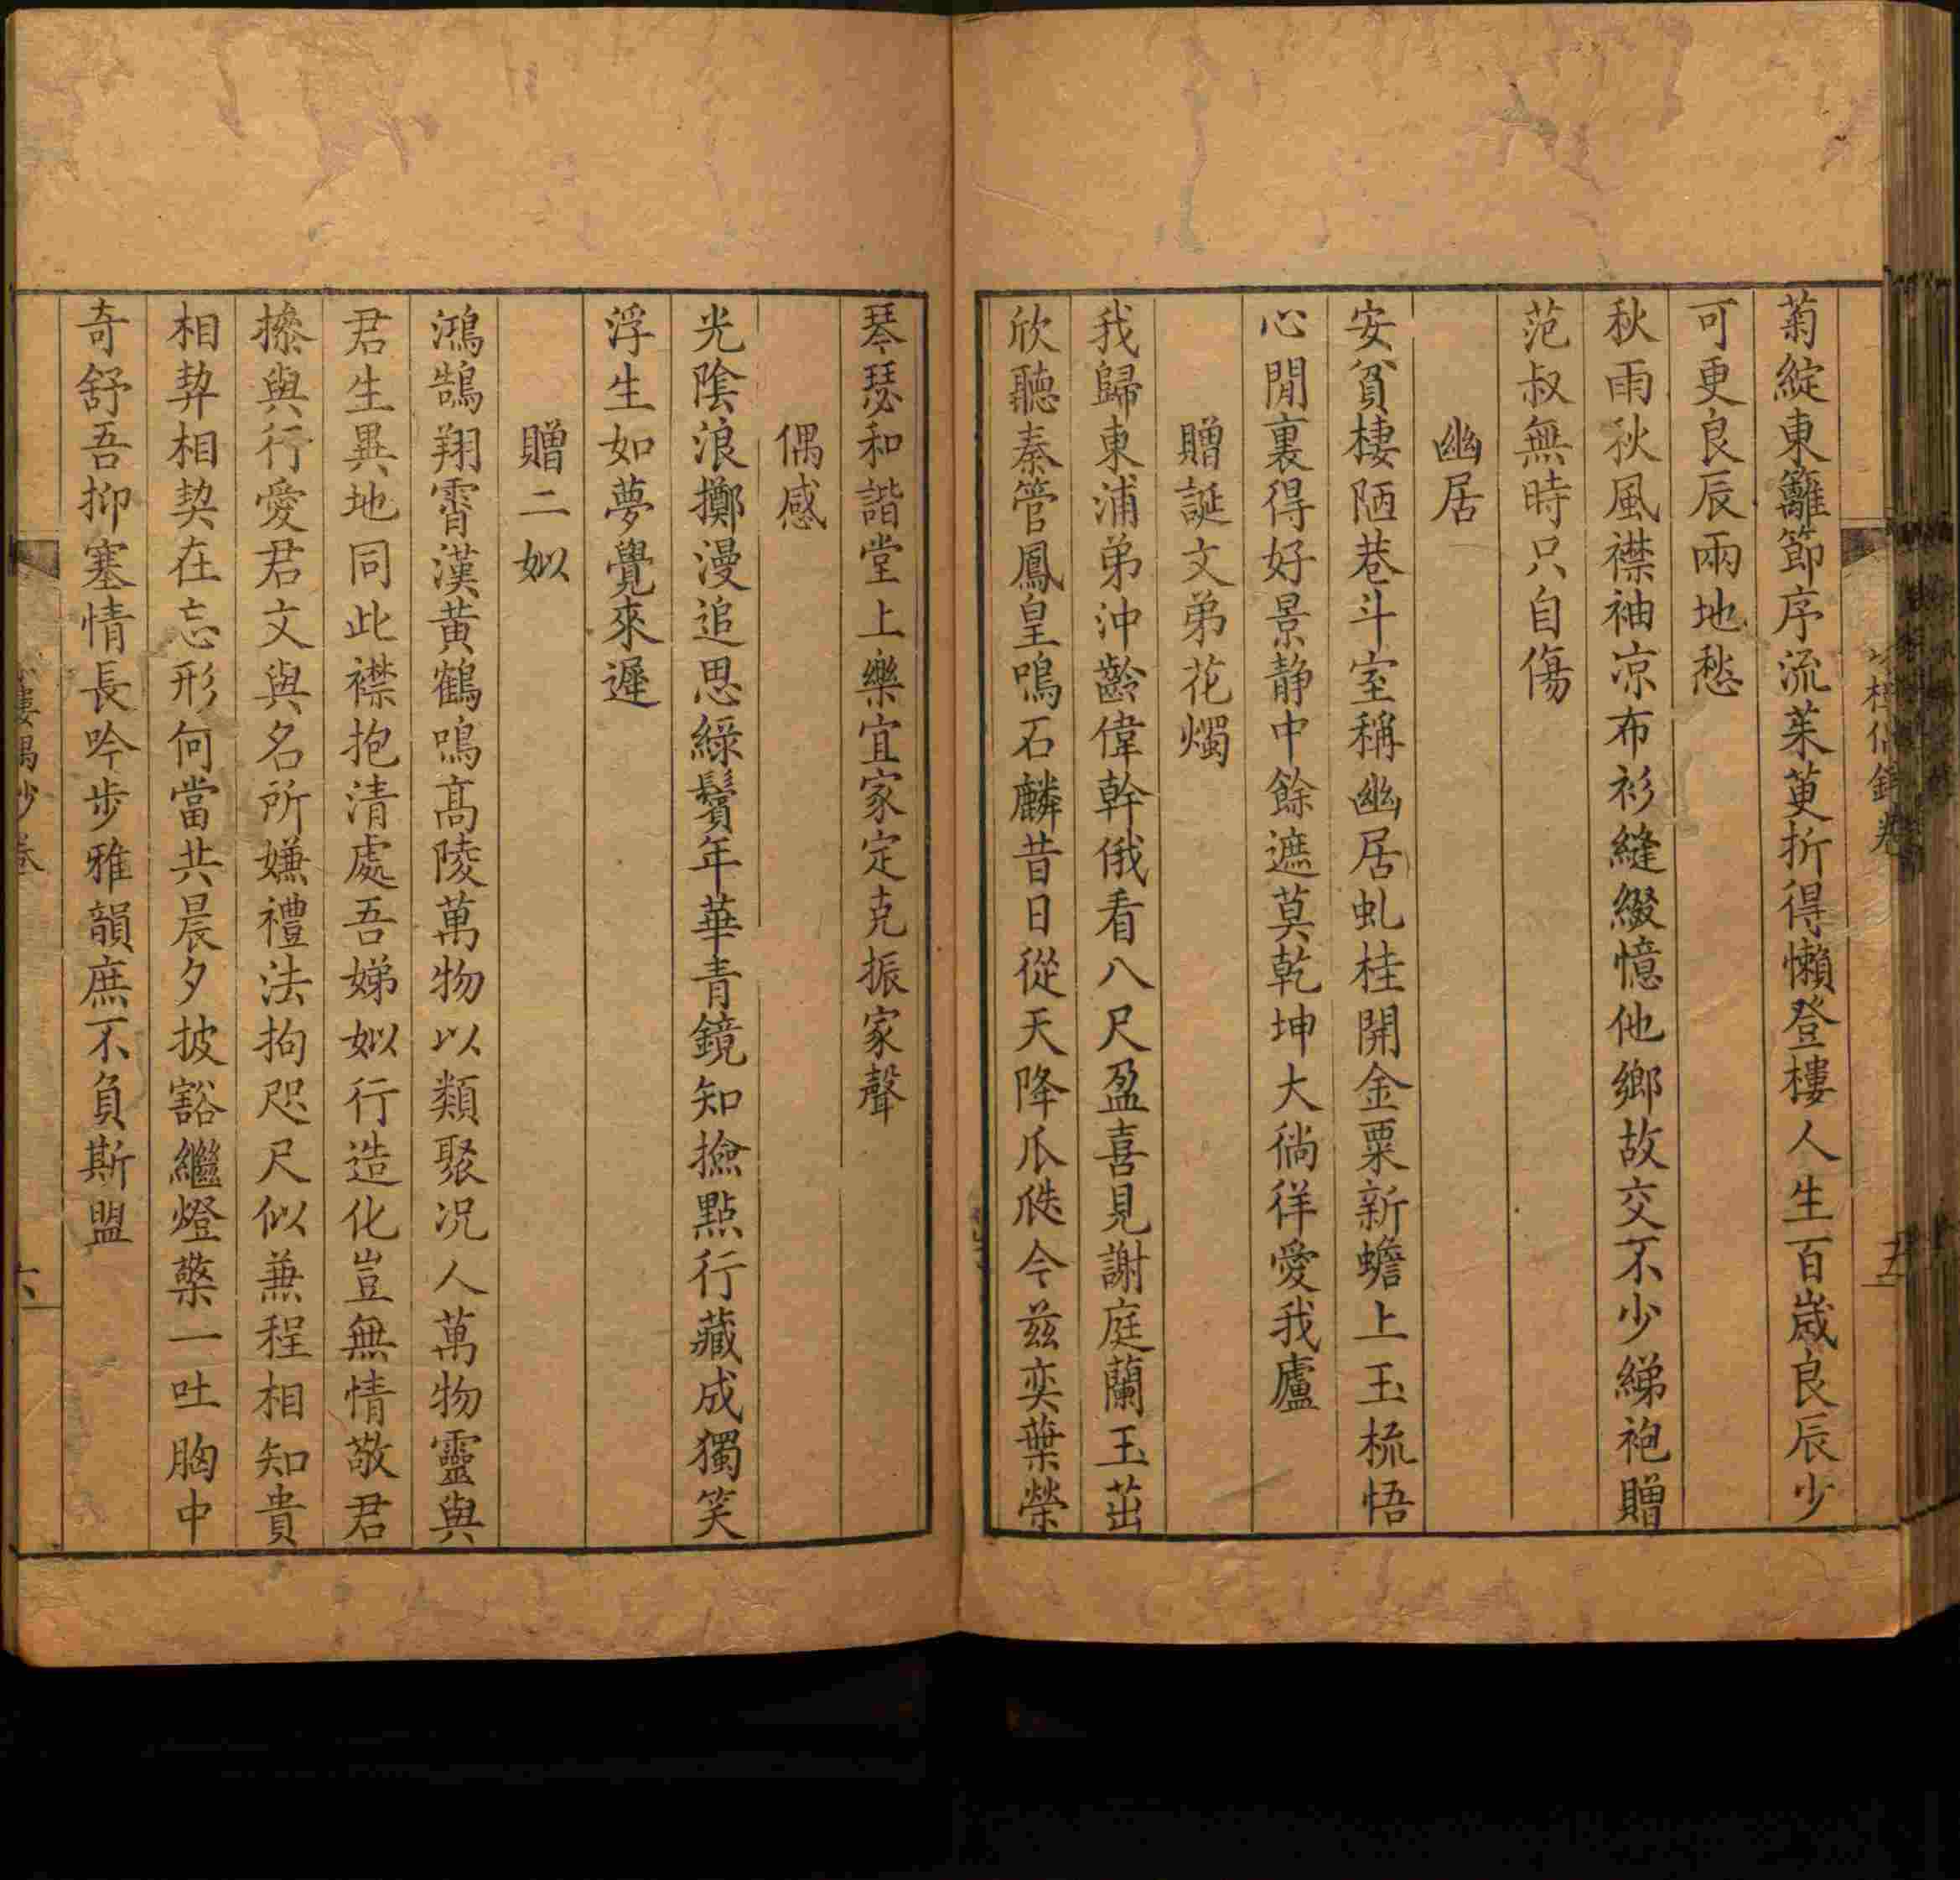 菊綻東籬節序流茱萸折得懶登樓人生百歲良辰少
可更良辰兩地愁
秋雨秋風襟袖凉布衫縫綴憶他鄉故交不少綈袍贈
范叔無時只自傷
幽居
安貧棲陋巷斗室稱幽居虬桂開金粟新蟾上玉梳悟
心閒裏得好景静中餘遮莫乾坤大徜徉愛我廬
贈誕文弟花燭
我歸東浦弟沖齡偉幹俄看八尺盈喜見謝庭蘭玉茁
欣聽秦管鳳皇鳴石麟昔日從天降瓜瓞今兹奕葉榮
琴瑟和諧堂上樂宜家定克振家聲
偶感
光陰浪擲漫追思綠鬢年華青鏡知撿點行藏成獨笑
浮生如夢覺來遲
贈二姒
鴻鵠翔霄漢黄鶴鳴高陵萬物以類聚况人萬物靈與
君生異地同此襟抱清處吾娣姒行造化豈無情敬君
操與行愛君文與名所嫌禮法拘咫尺似兼程相知貴
相契相契在忘形何當共晨夕披豁繼燈檠一吐胸中
奇舒吾抑塞情長吟步雅韻庶不負斯盟
六